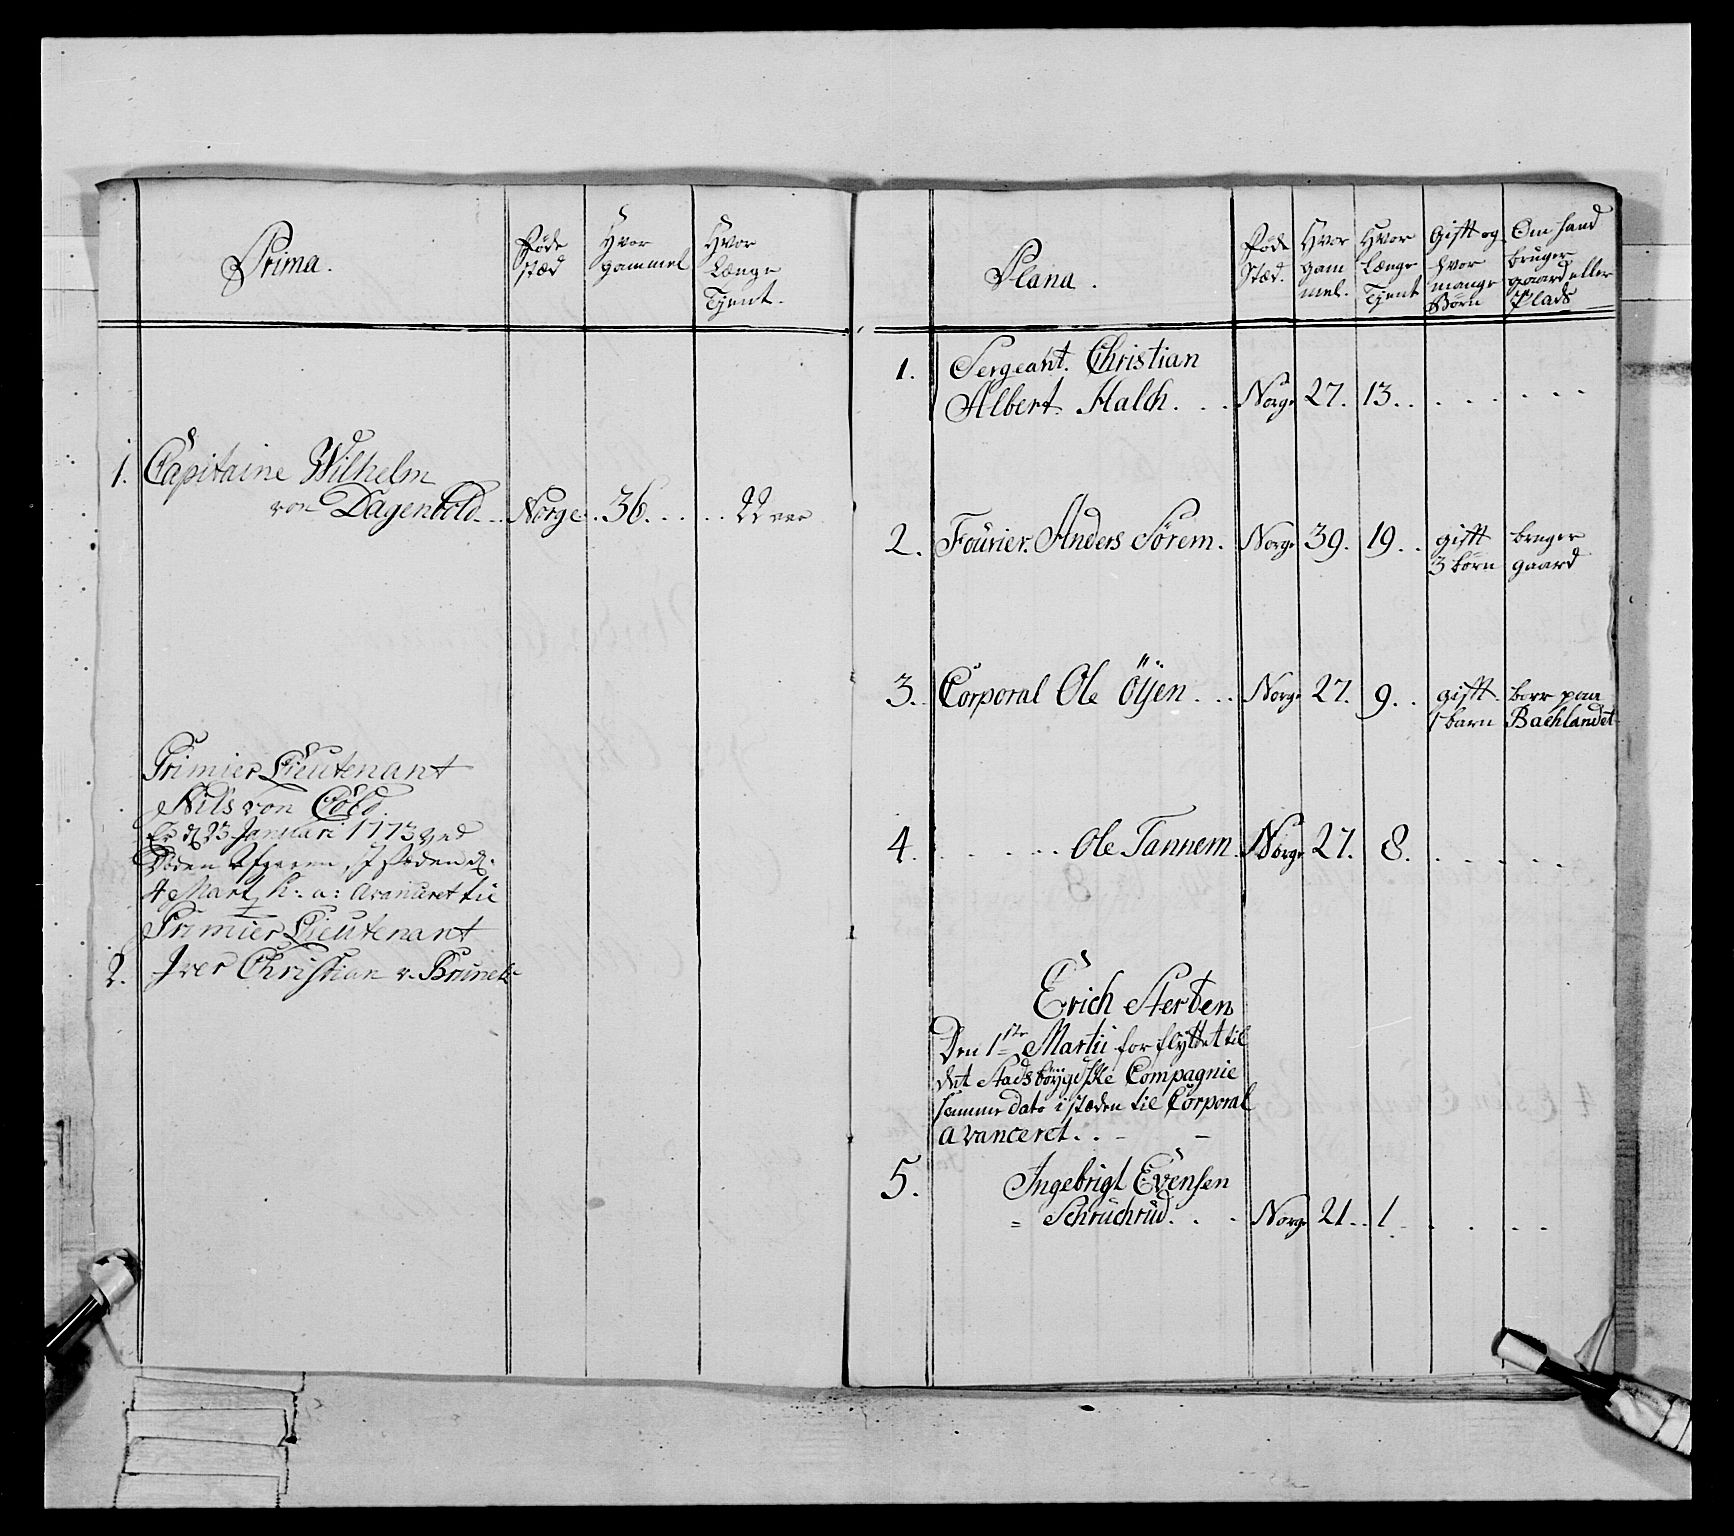 Prima.
Føde Stæd
Hvor gammel
Hvor Længe Tjent.
1. Capitaine Wilhelm
von Dagenbold... Norge. 36. ... 22
Primier Lieutenant
Nils von Cold
Er d 23 Januari 1773 ved
Døden Afgaaen, I steden d:
4 Mart h: a: Avanceret til
Primier Lieutenant
2. Iver Christian v. Brunek
Plana.
Føde Stæd.
Hvor gam mel.
Hvor Længe Tjent
Gift og hvor mange Børn
Om hand bruger gaard eller Plads
1. Sergeant. Christian
Albert Halch. . . Norge 27. 13. . . . . . . . .
2. Fourier. Anders Sørem. Norge 39. 19. . gift bruger
3 børn gaard
3. Corporal Ole Öÿen . . . Norge 27. 9. . gift boer paa
1 barn Bachlandet
4. . . . . . Ole Tannem. Norge 27. 8. . . . . . .
Erich Sterten
Den 1ste Martii forflyttet til
det Stadsbøygdske Compagnie
samme dato i stæden til Corporal
avanceret. . - -
5. Ingebrigt Evensen
= Schruchrud. . . Norge 21. . 1. . . . .